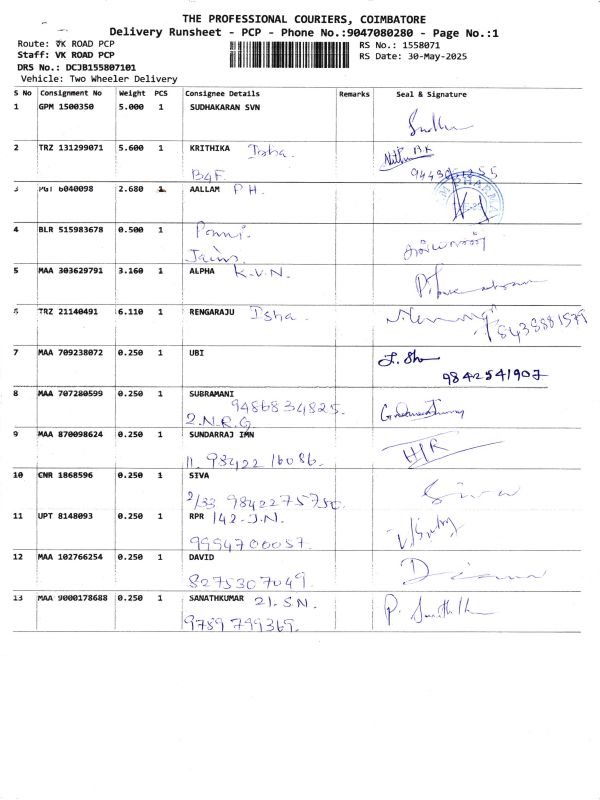 THE PROFESSIONAL COURIERS, COIMBATORE
Delivery Runsheet - PCP - Phone No.:9047080280 - Page No.:1
Route: VK ROAD PCP RS No.: 1558071
Staff: VK ROAD PCP RS Date: 30-May-2025
DRS No.: DCJB155807101
Vehicle: Two Wheeler Delivery
S No Consignment No Weight PCS Consignee Details Remarks Seal & Signature
1 GPM 1500350 5.000 1 SUDHAKARAN SVN
2 TRZ 131299071 5.600 1 KRITHIKA Isha.
B4F.
3 PGT 6040098 2.680 1 AALLAM P H.
4 BLR 515983678 0.500 1 Ponni.
Jains.
5 MAA 303629791 3.160 1 ALPHA K.V.N.
6 TRZ 21140491 6.110 1 RENGARAJU Isha.
8438881575
7 MAA 709238072 0.250 1 UBI
9842541907
8 MAA 707280599 0.250 1 SUBRAMANI
9486834825.
2.N.R.G.
9 MAA 870098624 0.250 1 SUNDARRAJ IMN
11. 98422 16086.
10 CNR 1868596 0.250 1 SIVA Siva
2/33 9842275750.
11 UPT 8148093 0.250 1 RPR 142-J.N.
9994700057.
12 MAA 102766254 0.250 1 DAVID
8275307049.
13 MAA 9000178688 0.250 1 SANATHKUMAR 21. S.N.
9789 799369.